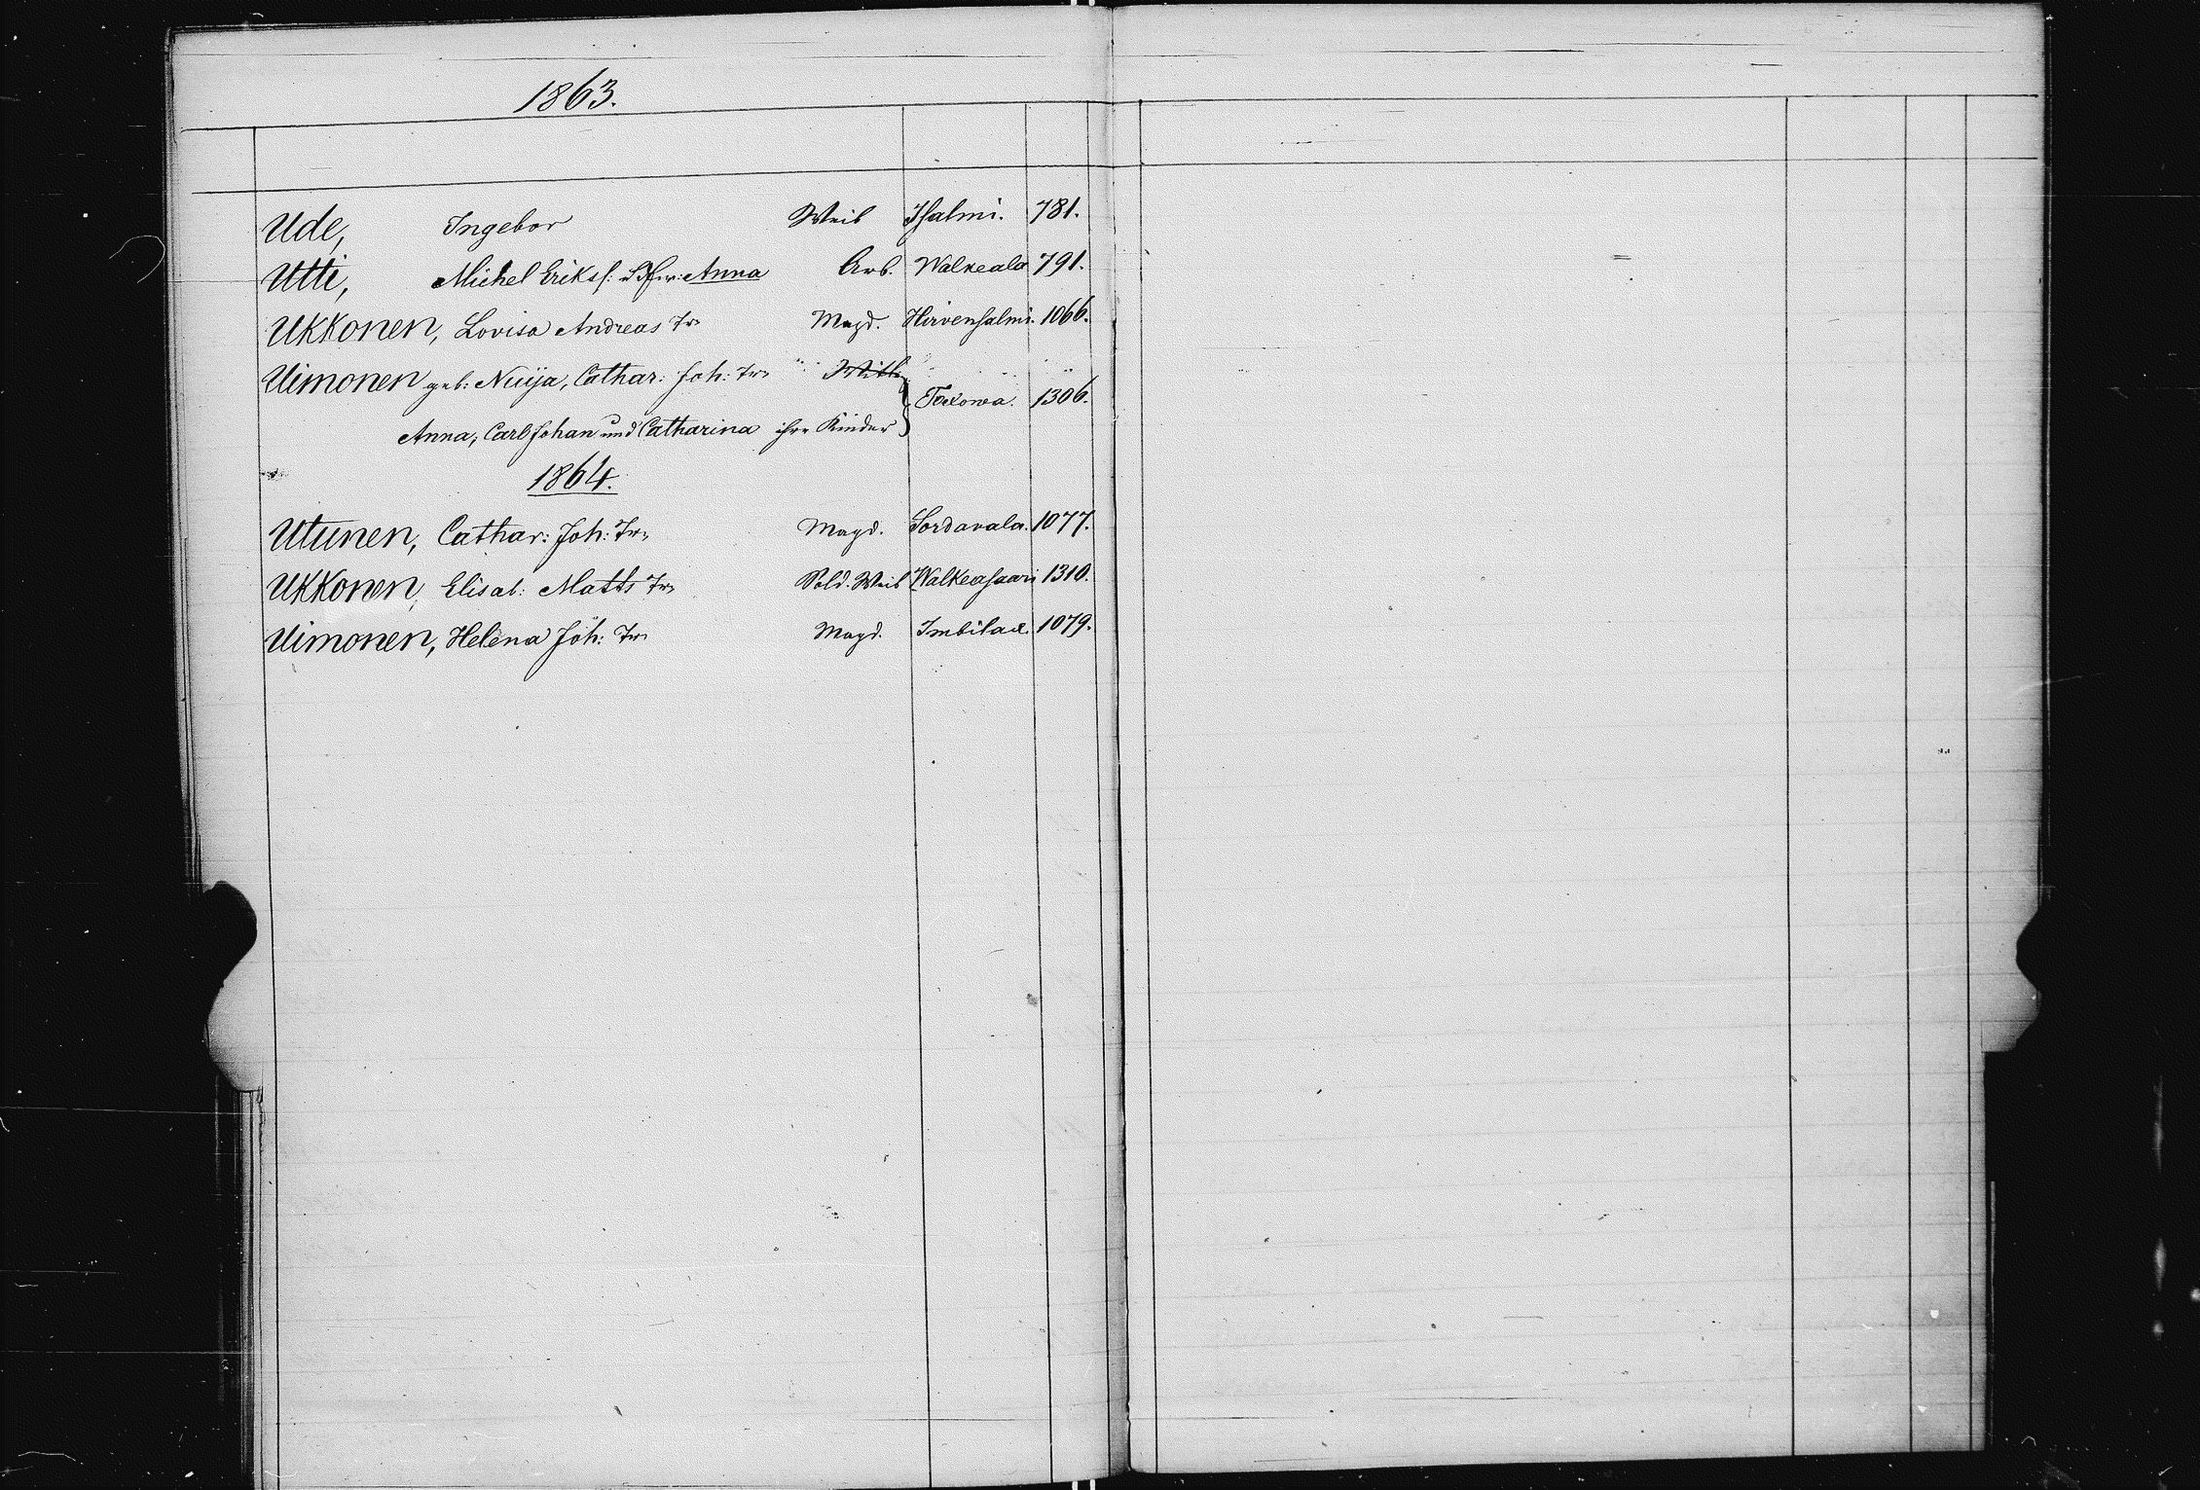 1863.
Ude, Ingebor Weib Ihalmi. 781.
Utti, Michel Eriks s: Anna Arb. Walkeala 791.
Ukkonen, Lovisa Andreas Tr Magd. Hirvensalmi. 1066.
Uimonen geb: Nuija, Cathar: Joh: Tr Toxowa. 1306.
Anna, Carl Johan und Catharina ihre Kinder
1864.
Utunen, Cathar: Joh: Tr Magd. Sordavala. 1077.
Ukkonen, Elisab: Matts Tr Sold. Weib Walkeasaari 1310.
Uimonen, Helena Joh: Tr Magd. Imbilax. 1079.